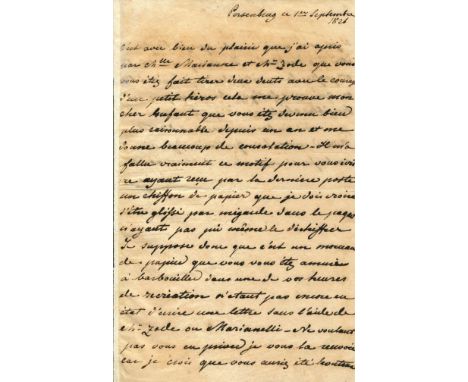 Persenbeug ce 1er Septembre
1821
C'est avec bien du plaisir que j'ai apris
par Mlle Marianne et Mr Zode que vous
vous étez fait tirer deux dents avec le courage
d'un petit héros cela me prouve mon
cher Enfant que vous étez devenu bien
plus raisonnable depuis un an et me
donne beaucoup de consolation - Il m'a
fallu vraiment ce motif pour vous écrire
ayant reçu par la derniere poste
un chiffon de papier que je dois croire
s'étre glissé par mégarde dans le paquet
n'ayant pas pû même le déchiffrer
Je suppose donc que c'est un morceau
de papier que vous vous étez amusé
à barbouiller dans une de vos heures
de recréation n'étant pas encore en
état d'écrire une lettre sans l'aide de
Mr Zode ou Marianelli - Ne voulant
pas vous en priver je vous la renvoie
car je crois que vous auriez été honteux